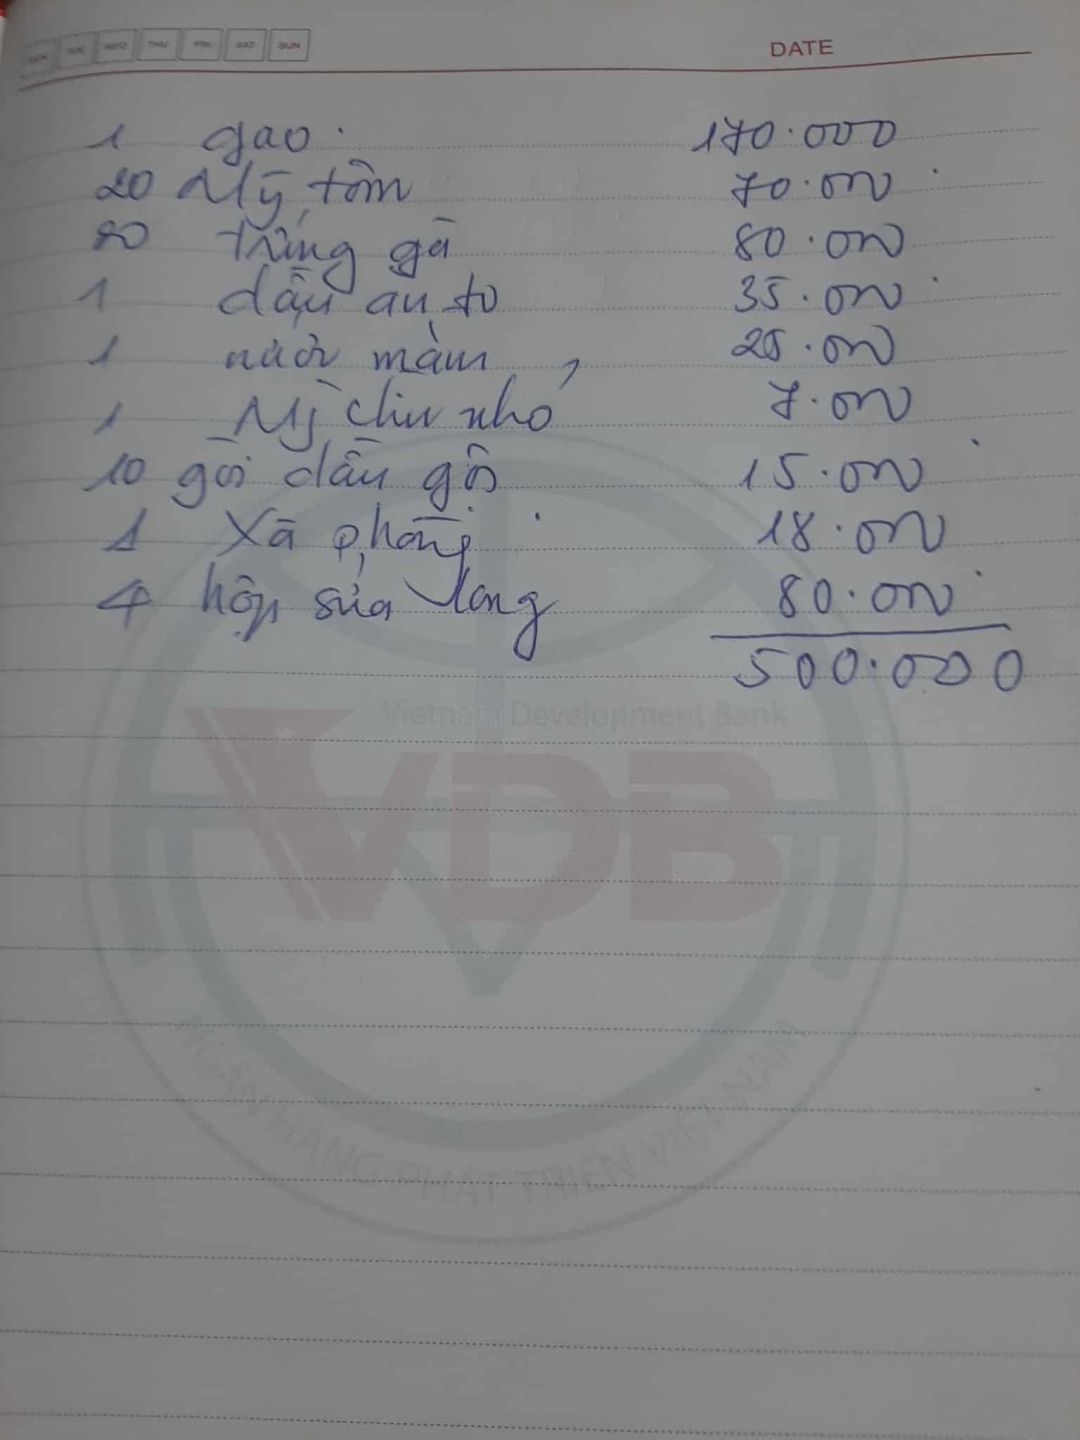 MON TUE WED THU FRI SAT SUN DATE
1 gạo 170.000
20 Mỳ tôm 70.000
20 trứng gà 80.000
1 dầu ăn to 35.000
1 nước mắm 25.000
1 Mỳ chín nhỏ 7.000
10 gói dầu gội 15.000
1 Xà phòng 18.000
4 hộp sữa long 80.000
500.000
Vietnam Development Bank
VDB
NGÂN HÀNG PHÁT TRIỂN VIỆT NAM